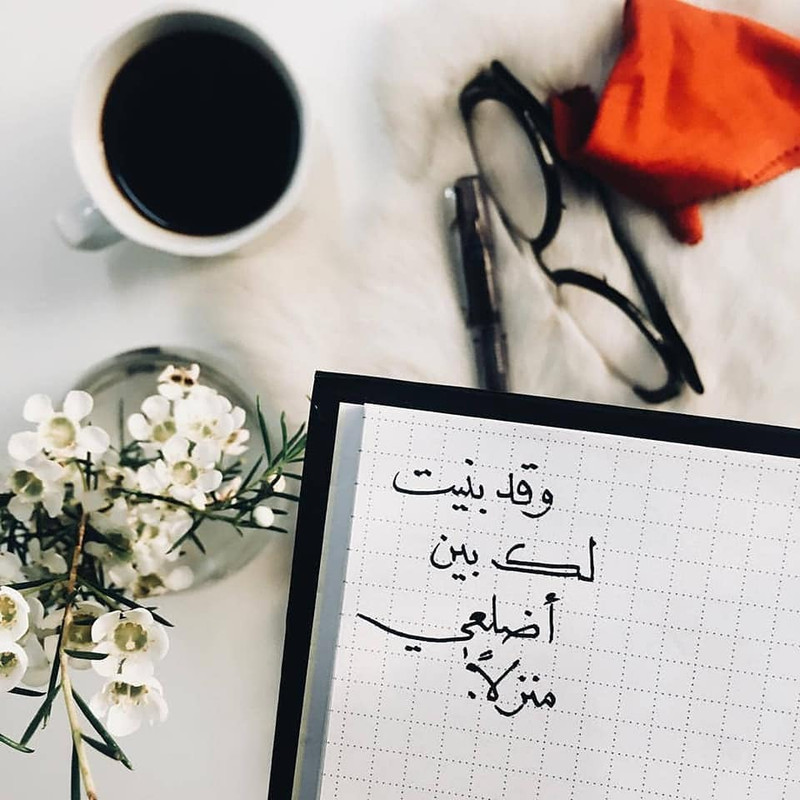 وقد بنيت
لك بين
أضلعي
منزلاً.